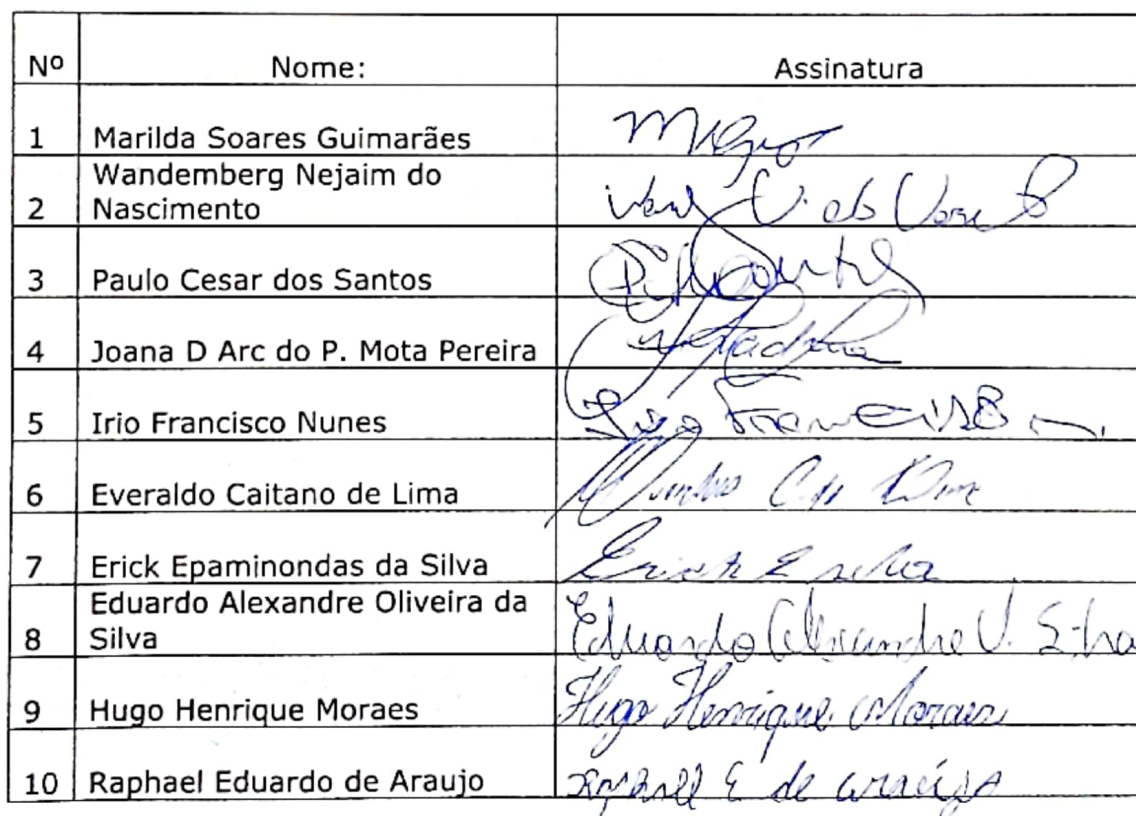 Nº Nome: Assinatura
1 Marilda Soares Guimarães
Wandemberg Nejaim do
2 Nascimento
3 Paulo Cesar dos Santos
4 Joana D Arc do P. Mota Pereira
5 Irio Francisco Nunes Irio Francisco
6 Everaldo Caitano de Lima
7 Erick Epaminondas da Silva Erick E Silva
Eduardo Alexandre Oliveira da
8 Silva Eduardo Alexandre O. Silva
9 Hugo Henrique Moraes Hugo Henrique Moraes
10 Raphael Eduardo de Araujo Raphael E de Araújo